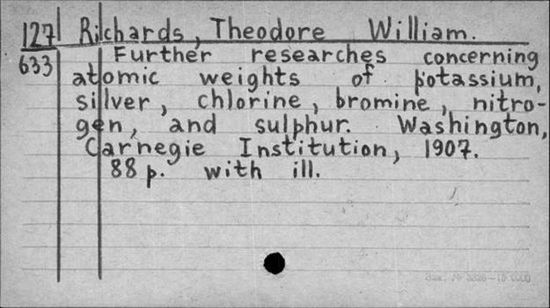 127 Richards, Theodore William.
633 Further researches concerning
atomic weights of potassium,
silver, chlorine, bromine, nitro-
gen, and sulphur. Washington,
Carnegie Institution, 1907.
88 p. with ill.